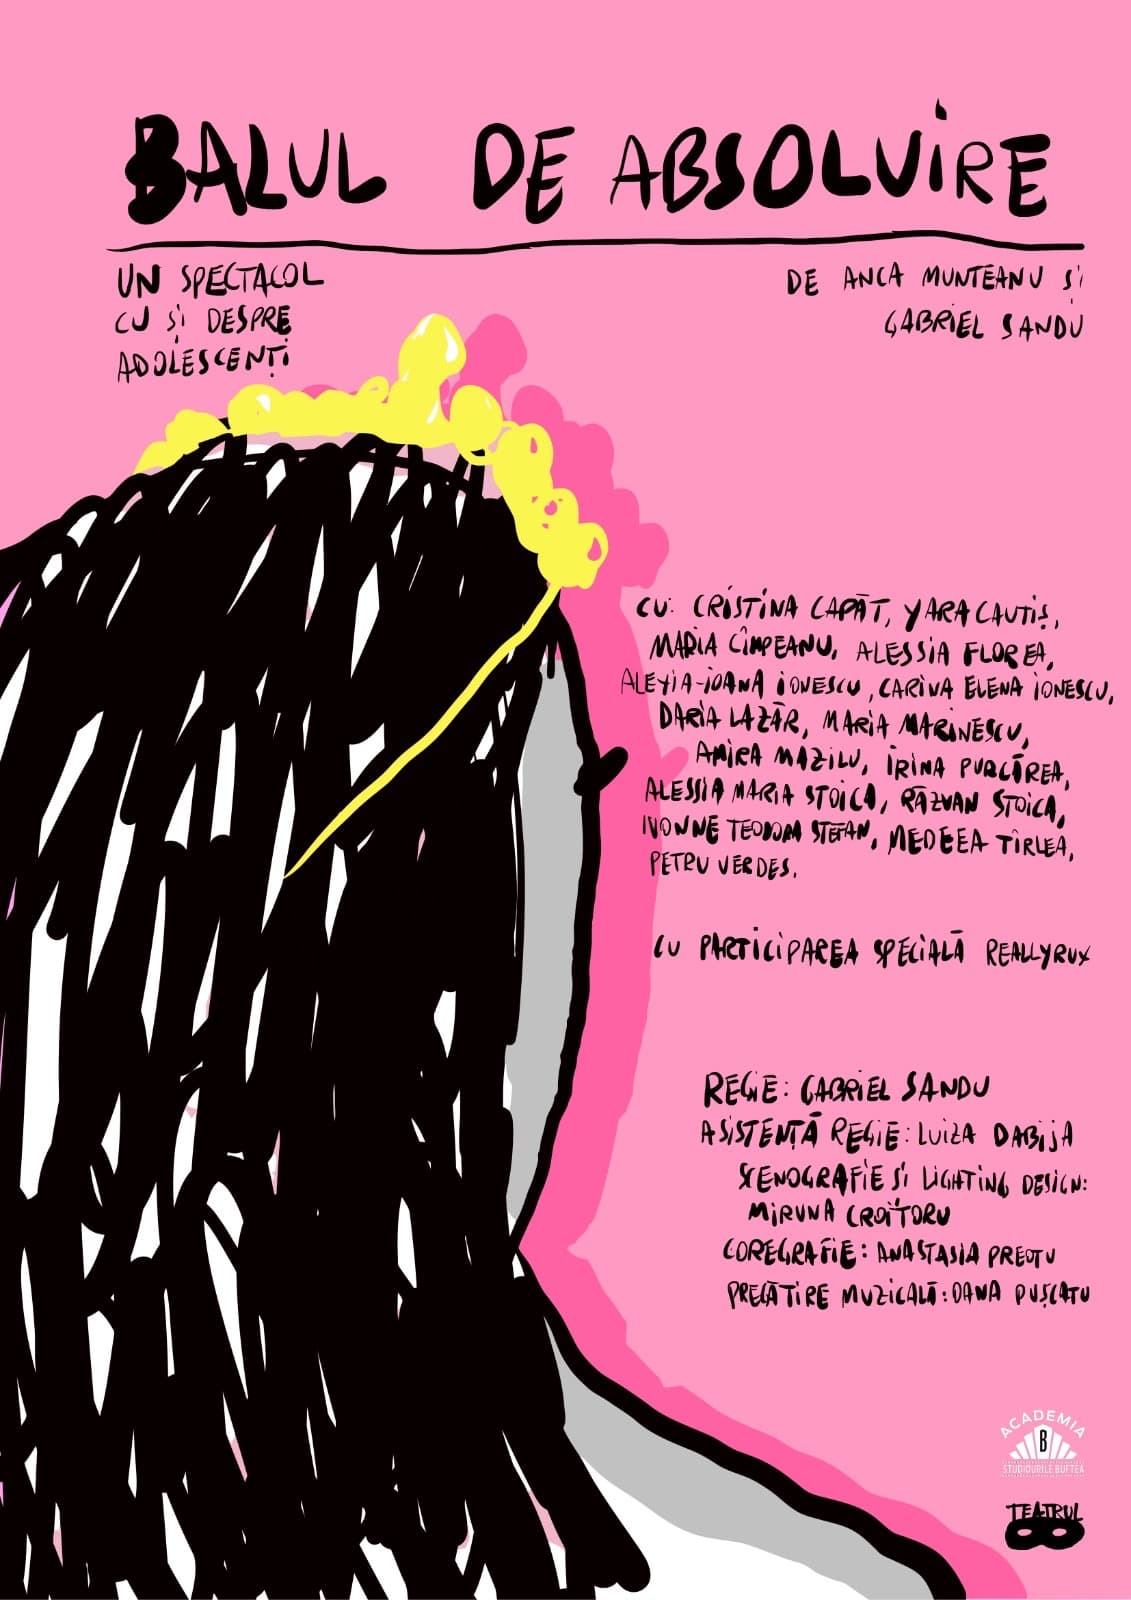 BALUL DE ABSOLVIRE
UN SPECTACOL
CU ȘI DESPRE
ADOLESCENȚI
DE ANCA MUNTEANU ȘI
GABRIEL SANDU
CU: CRISTINA CAPĂT, YARA CAUTIȘ,
MARIA CÎMPEANU, ALESSIA FLOREA,
ALEXIA-IOANA IONESCU, CARINA ELENA IONESCU,
DARIA LAZĂR, MARIA MARINESCU,
AMIRA MAZILU, IRINA PURCĂREA,
ALESSIA MARIA STOICA, RĂZVAN STOICA,
IVONNE TEODORA ȘTEFAN, MEDEEA TÎRLEA,
PETRU VERDES.
CU PARTICIPAREA SPECIALĂ REALLYRUX
REGIE: GABRIEL SANDU
ASISTENȚĂ REGIE: LUIZA DABIJA
SCENOGRAFIE ȘI LIGHTING DESIGN:
MIRUNA CROITORU
COREGRAFIE: ANASTASIA PREOTU
PREGĂTIRE MUZICALĂ: DANA PUȘCATU
ACADEMIA
B
STUDIOURILE BUFTEA
TEATRUL